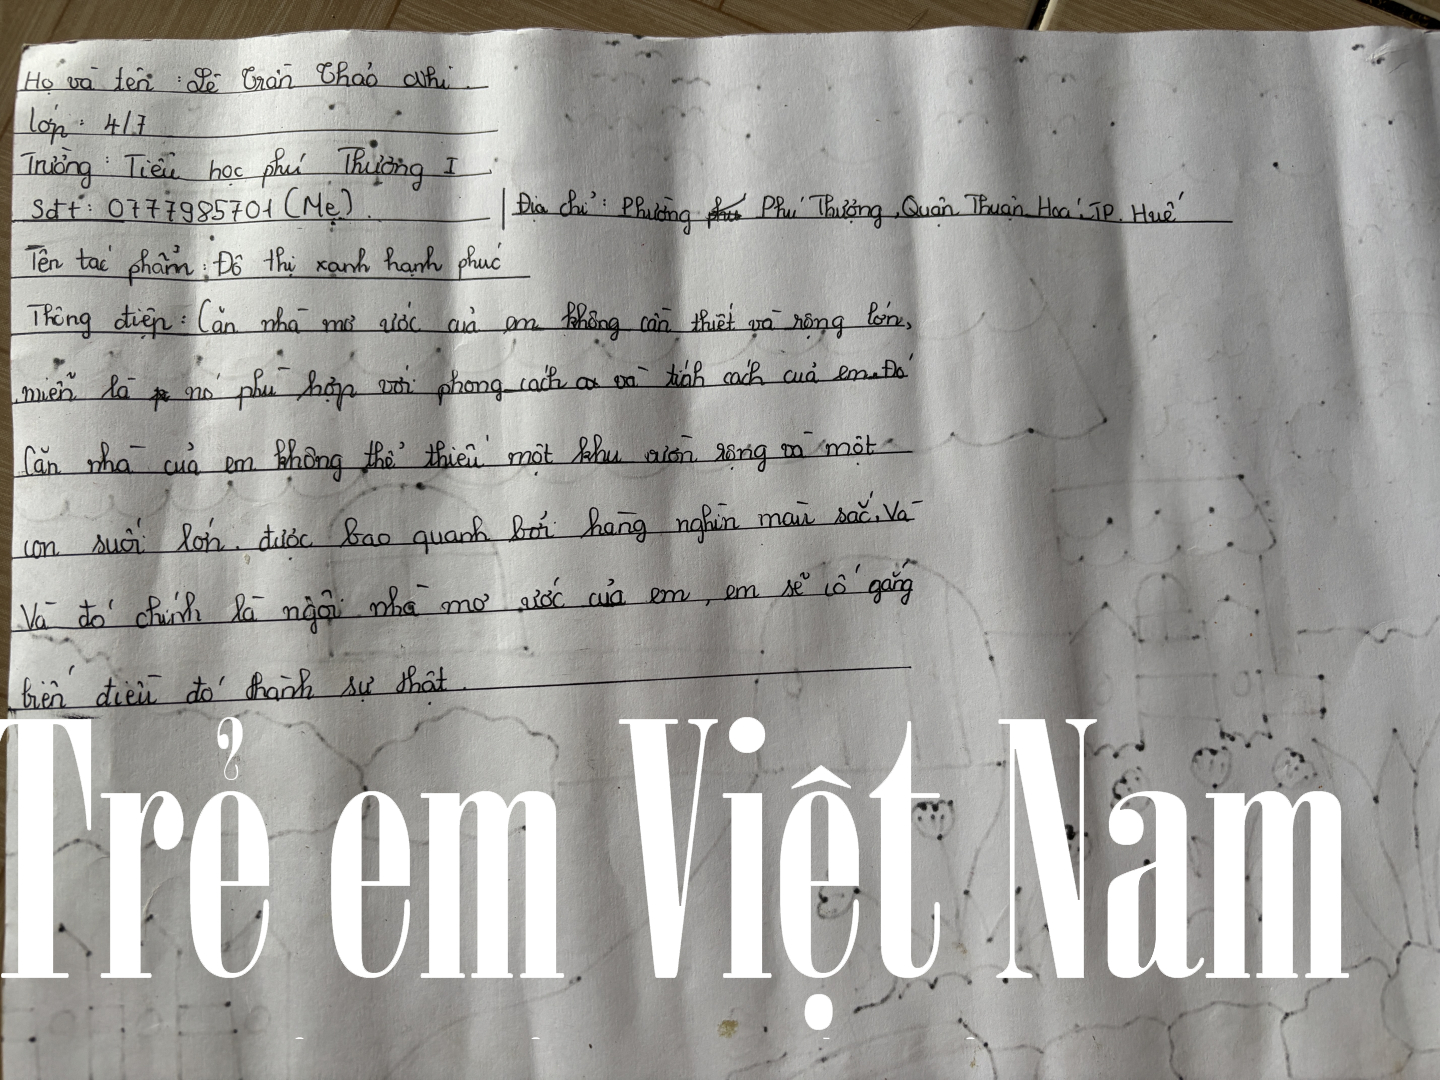 Họ và tên : Lê Trần Thảo Nhi.
lớp: 4/7
Trường: Tiểu học phú Thượng I
Sđt: 0777985701 (Mẹ).
Địa chỉ: Phường Phú Thượng, Quận Thuận Hoá, TP. Huế
Tên tác phẩm: Đô thị xanh hạnh phúc
Thông điệp: Căn nhà mơ ước của em không cần thiết và rộng lớn,
miễn là nó phù hợp với phong cách và tính cách của em. Đó
Căn nhà của em không thể thiếu một khu vườn rộng và một
con suối lớn. được bao quanh bởi hàng nghìn màu sắc. Và
Và đó chính là ngôi nhà mơ ước của em, em sẽ cố gắng
biến điều đó thành sự thật.
Trẻ em Việt Nam